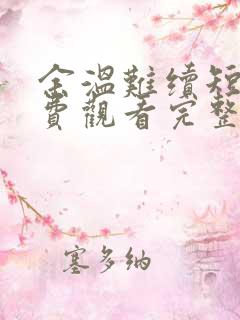 余温難續短
費觀看完整
塞多納